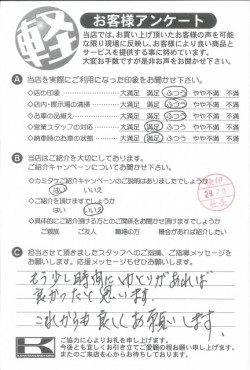 軽
お客様アンケート
当店では、お買い上げ頂いたお客様の声を可能
な限り現場に反映し、お客様により良い商品と
サービスを提供する事に努めています。
大変お手数ですが是非お声をお聞かせ下さい。
A 当店を実際にご利用になった印象をお聞かせ下さい。
◇店の印象 大満足 満足 ふつう やや不満 不満
◇店内・展示場の清掃 大満足 満足 ふつう やや不満 不満
◇お車の品揃え 大満足 満足 ふつう やや不満 不満
◇営業スタッフの対応 大満足 満足 ふつう やや不満 不満
◇納車時のお車の状態 大満足 満足 ふつう やや不満 不満
B 当店はご紹介を大切にしてあります。
ご紹介キャンペーンについてお聞かせ下さい。
◇カミタケご紹介キャンペーンのご説明はありましたでしょうか
はい いいえ
◇ご紹介を頂けますでしょうか
はい いいえ
◇具体的にご紹介頂ける方とのご関係をお聞かせ頂けますでしょうか
ご親族 ご友人 職場の方 機会があれば紹介したい
C 担当させて頂きましたスタッフへのご指摘、ご指導メッセージを
お願いします。応援メッセージもぜひお願いします。
もう少し時間にゆとりがあれば
良かったと思います。
これからも良しくお願いします。
K
ご協力に心よりお礼を申し上げます。
今後とも宜しくお引き立てご愛顧の程お願い申し上げます。
またのご来店を心からお待ちしております。